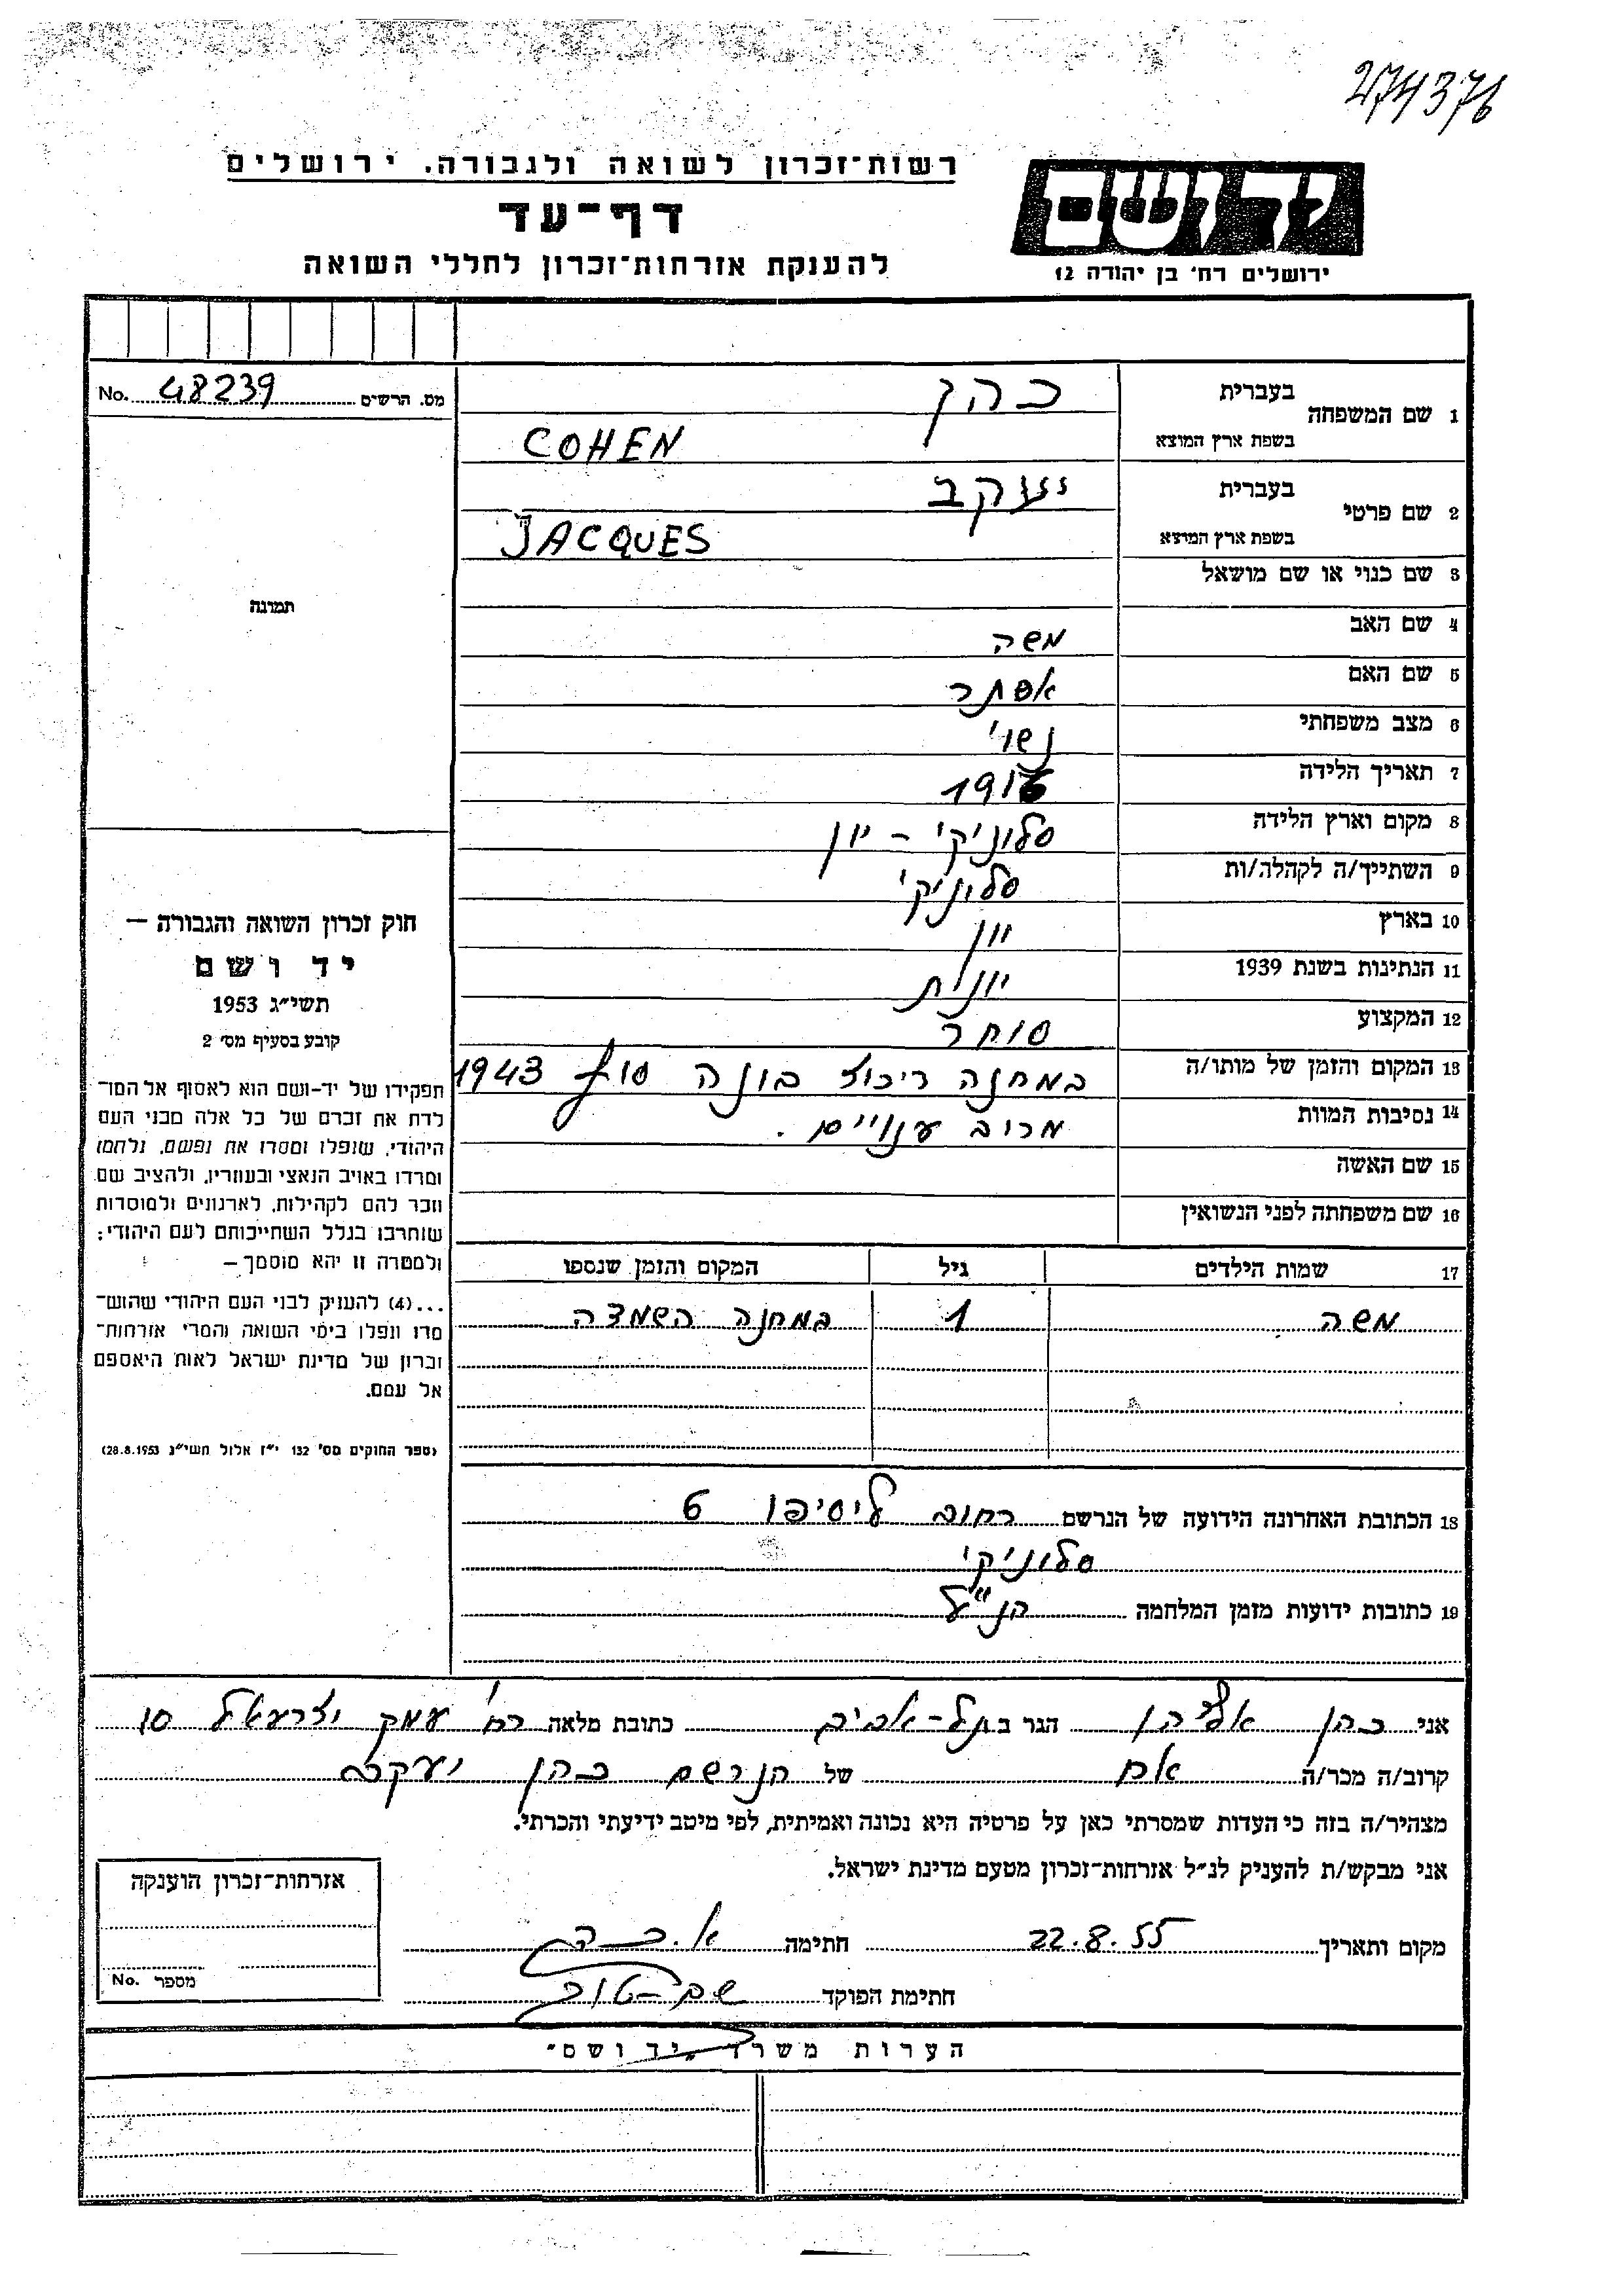 274376
רשות־זכרון לשואה ולגבורה. ירושלים
דף־עד
להענקת אזרחות־זכרון לחללי השואה
יד ושם
ירושלים רח' בן יהודה 12
מס. הרשים 48239 No.
תמונה
חוק זכרון השואה והגבורה —
יד ושם
תשי״ג 1953
קובע בסעיף מס׳ 2
תפקידו של יד-ושם הוא לאסוף אל המו־
לדת את זכרם של כל אלה מבני העם
היהודי, שנפלו ומסרו את נפשם, נלחמו
ומרדו באויב הנאצי ובעוזריו, ולהציב שם
וזכר להם לקהילות, לארגונים ולמוסדות
שוחרבו בגלל השתייכותם לעם היהודי;
ולמטרה זו יהא מוסמך —
...(4) להעניק לבני העם היהודי שהוש־
מדו ונפלו בימי השואה והמרי אזרחות־
זכרון של מדינת ישראל לאות היאספם
אל עמם.
(ספר החוקים מס׳ 132 י״ז אלול תשי״ג 28.8.1953)
1 שם המשפחה
בעברית כהן
בשפת ארץ המוצא COHEN
2 שם פרטי
בעברית יעקב
בשפת ארץ המוצא JACQUES
3 שם כנוי או שם מושאל
4 שם האב משה
5 שם האם אסתר
6 מצב משפחתי נשוי
7 תאריך הלידה
8 מקום וארץ הלידה סלוניקי - יון
9 השתייך/ה לקהלה/ות סלוניקי
10 בארץ יון
11 הנתינות בשנת 1939 יונית
12 המקצוע סוחר
13 המקום והזמן של מותו/ה במחנה ריכוז בונה סוף 1943
14 נסיבות המוות מרוב ענויים.
15 שם האשה
16 שם משפחתה לפני הנשואין
17 שמות הילדים גיל המקום והזמן שנספו
משה 1 במחנה השמדה
18 הכתובת האחרונה הידועה של הנרשם רחוב ליסיפו 6
סלוניקי
19 כתובות ידועות מזמן המלחמה הנ״ל
אני כהן אלברט הגר ב תל-אביב כתובת מלאה רח' עמק יזרעאל 10
קרוב/ה מכר/ה אח של הנרשם כהן יעקב
מצהיר/ה בזה כי העדות שמסרתי כאן על פרטיה היא נכונה ואמיתית, לפי מיטב ידיעתי והכרתי.
אני מבקש/ת להעניק לנ״ל אזרחות־זכרון מטעם מדינת ישראל.
מקום ותאריך 22.8.55 חתימה א. כהן
חתימת הפוקד שם-טוב
אזרחות־זכרון הוענקה
מספר No.
הערות משרד „יד ושם״